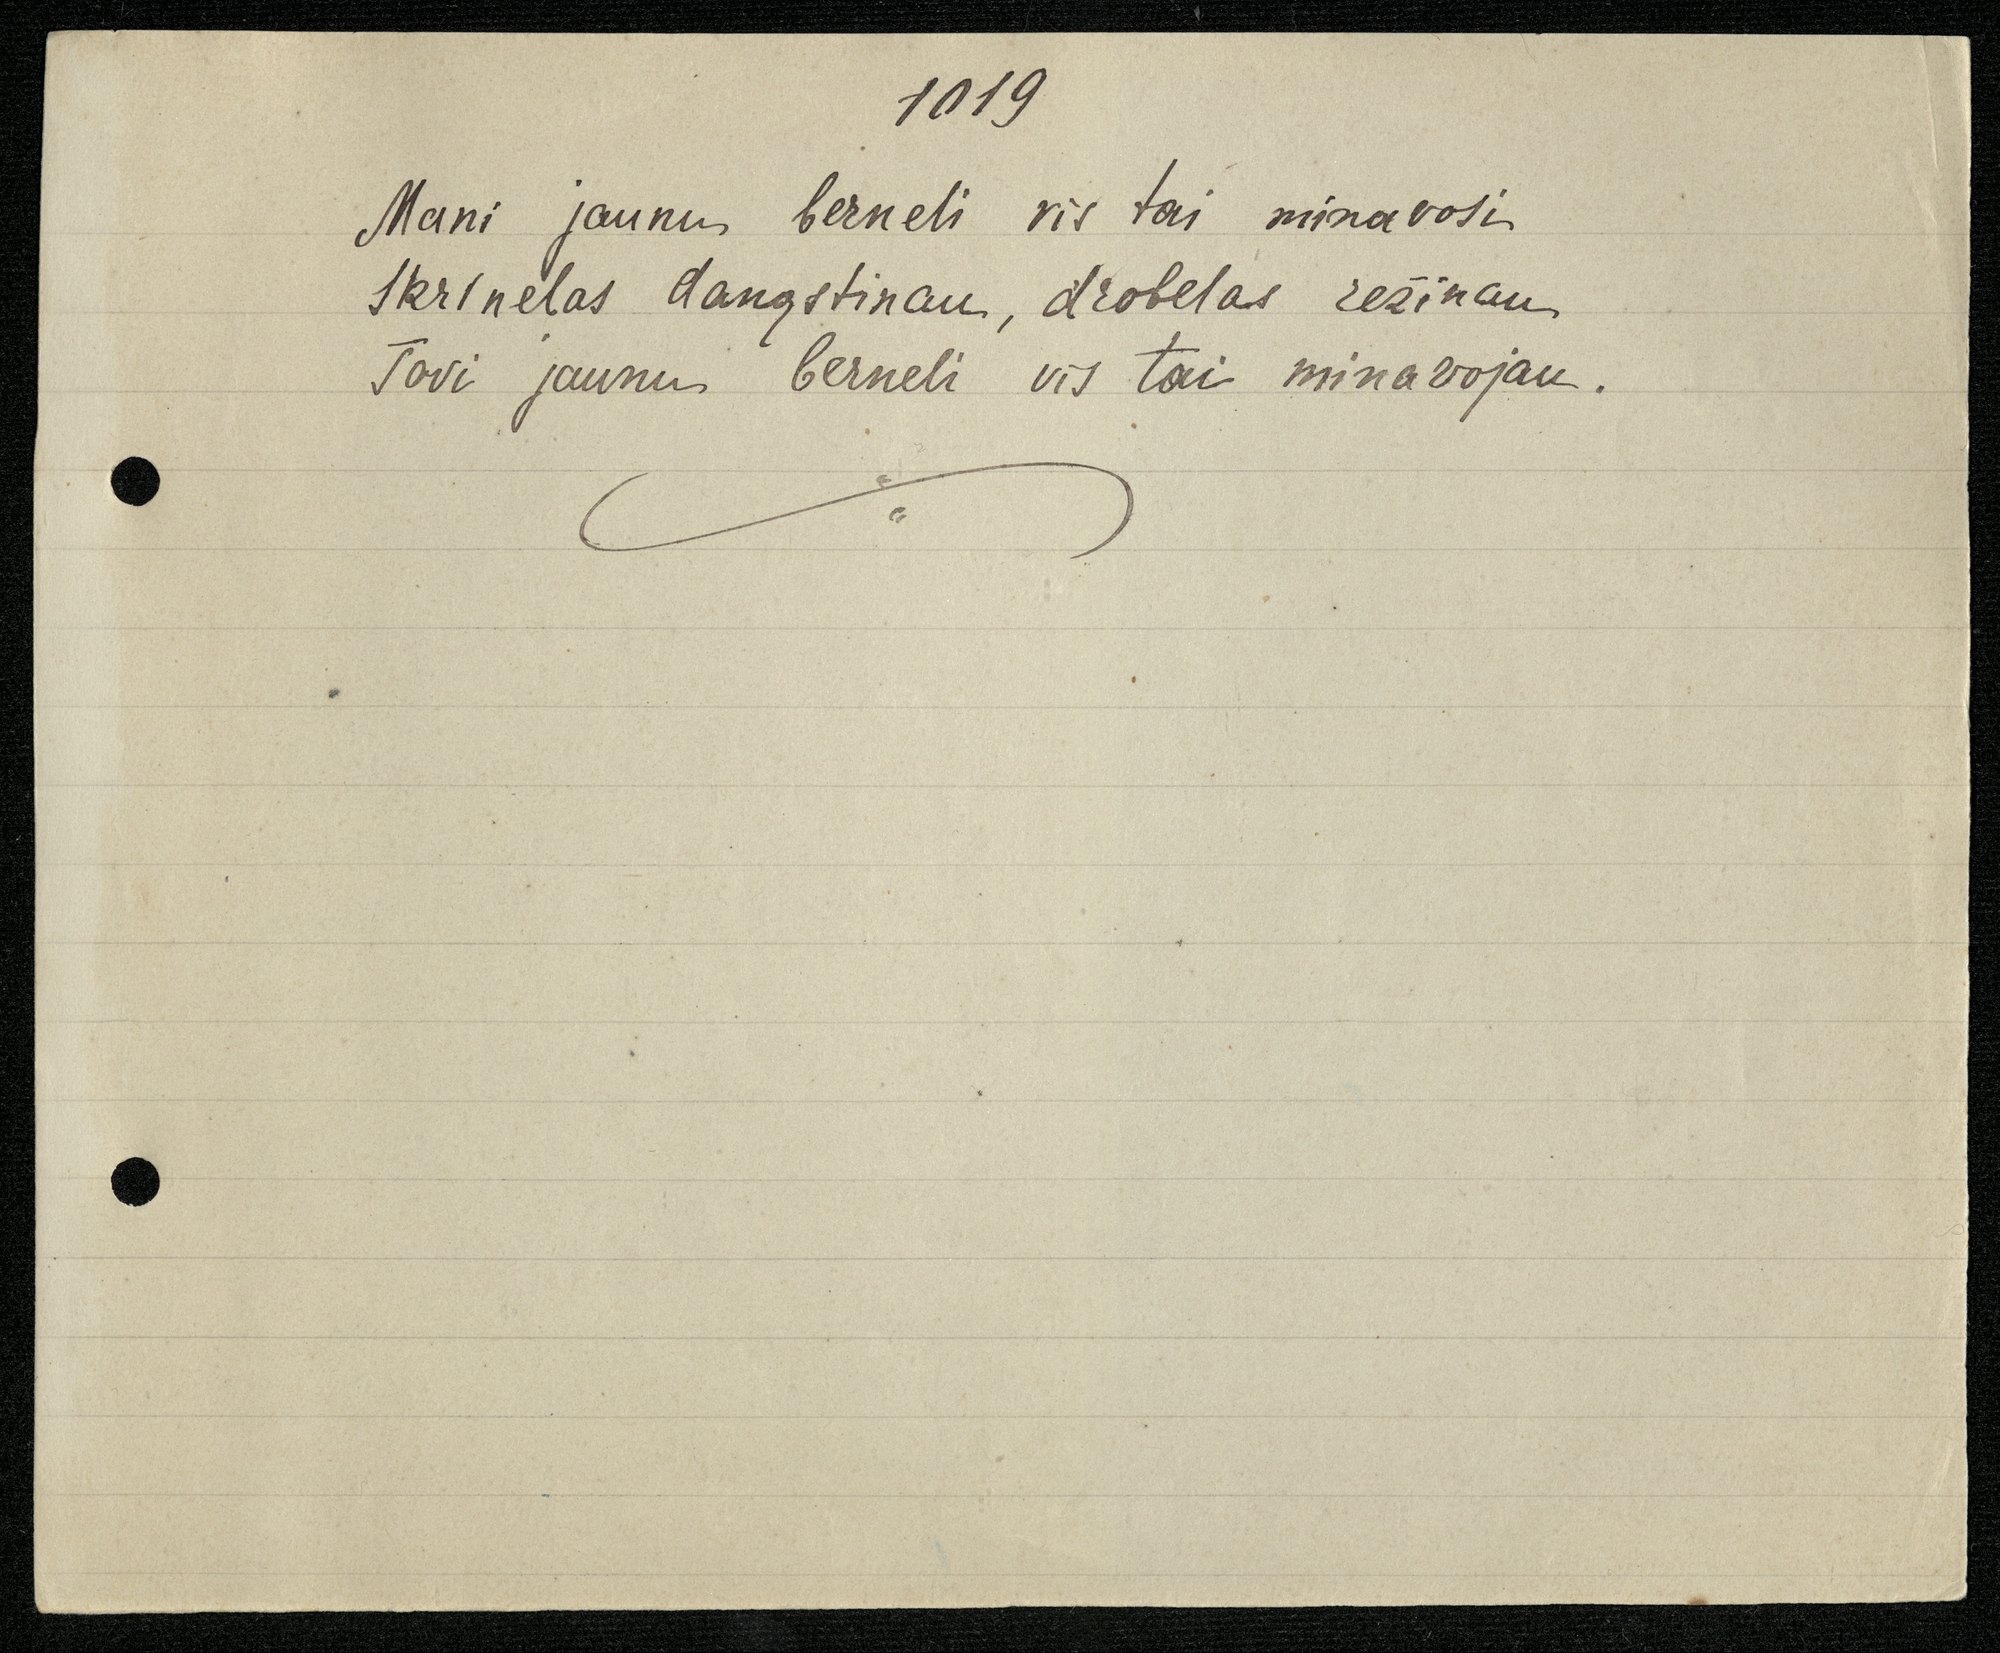 1019
Mani jaunu berneli vis tai minavosi
Skrinelas dangstinau, drobelas režinau
Tovi jaunu berneli vis tai minavojau.